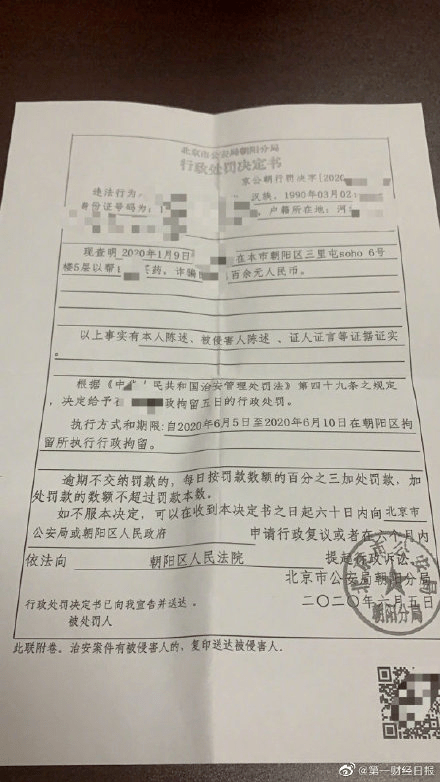 北京市公安局朝阳分局
行政处罚决定书
京公朝行罚决字[2020
违法行为
汉族，1990年03月02
身份证号码为：
，户籍所在地：河
现查明2020年1月9日
在本市朝阳区三里屯soho 6号
楼5层以帮
买药，诈骗
百余元人民币。
以上事实有本人陈述、被侵害人陈述 、证人证言等证据证实
。
根据《中
民共和国治安管理处罚法》第四十九条之规定
，决定给予
政拘留五日的行政处罚。
执行方式和期限：自2020年6月5日至2020年6月10日在朝阳区拘
留所执行行政拘留。
逾期不交纳罚款的，每日按罚款数额的百分之三加处罚款，加
处罚款的数额不超过罚款本数。
如不服本决定，可以在收到本决定书之日起六十日内向 北京市
公安局或朝阳区人民政府 申请行政复议或者在六个月内
依法向 朝阳区人民法院 提起行政诉讼
北京市公安局朝阳分局
二〇二〇年六月五日
朝阳分局
行政处罚决定书已向我宣告并送达。
被处罚人
此联附卷。治安案件有被侵害人的，复印送达被侵害人.
@第一财经日报